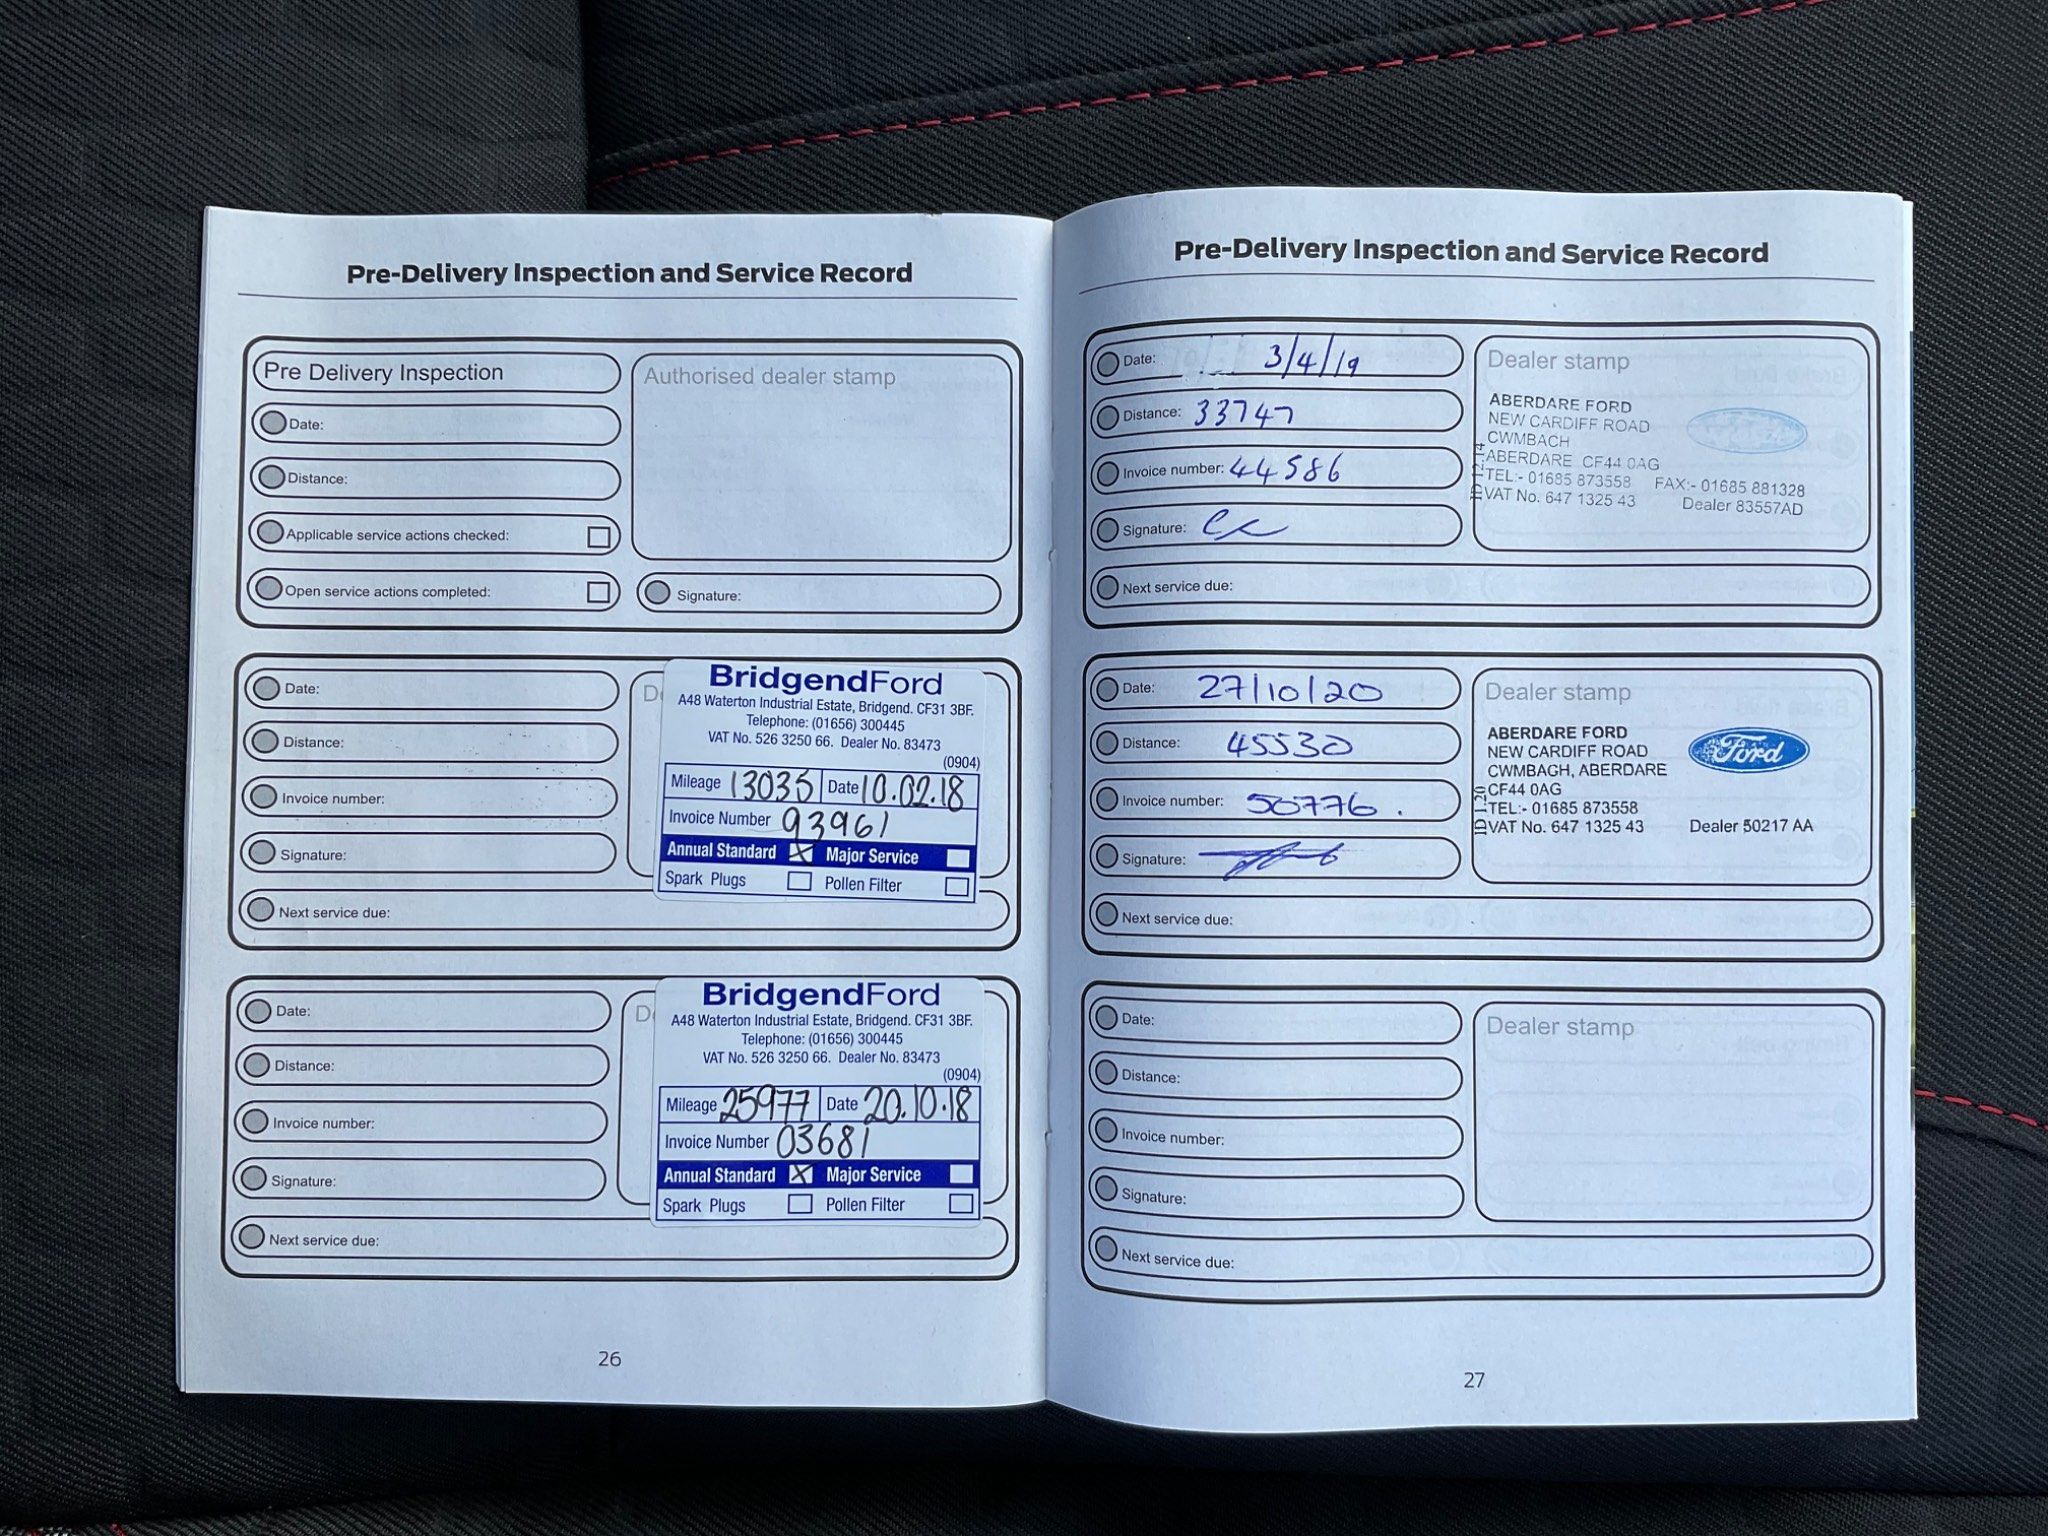 Pre-Delivery Inspection and Service Record
Pre Delivery Inspection
Authorised dealer stamp
Date:
Distance:
Applicable service actions checked:
Open service actions completed:
Signature:
Date:
Distance:
Invoice number:
Signature:
Next service due:
BridgendFord
A48 Waterton Industrial Estate, Bridgend. CF31 3BF.
Telephone: (01656) 300445
VAT No. 526 3250 66. Dealer No. 83473
(0904)
Mileage 13035 Date 10.02.18
Invoice Number 93961
Annual Standard X Major Service
Spark Plugs Pollen Filter
Date:
Distance:
Invoice number:
Signature:
Next service due:
BridgendFord
A48 Waterton Industrial Estate, Bridgend. CF31 3BF.
Telephone: (01656) 300445
VAT No. 526 3250 66. Dealer No. 83473
(0904)
Mileage 25977 Date 20.10.18
Invoice Number 03681
Annual Standard X Major Service
Spark Plugs Pollen Filter
26
Pre-Delivery Inspection and Service Record
Date: 3/4/19
Distance: 33747
Invoice number: 44586
Signature:
Next service due:
Dealer stamp
ABERDARE FORD
NEW CARDIFF ROAD
CWMBACH
ABERDARE CF44 0AG
TEL:- 01685 873558 FAX:- 01685 881328
VAT No. 647 1325 43 Dealer 83557AD
ID 12.14
Date: 27/10/20
Distance: 45530
Invoice number: 50776.
Signature:
Next service due:
Dealer stamp
ABERDARE FORD
NEW CARDIFF ROAD
CWMBAGH, ABERDARE
CF44 0AG
TEL:- 01685 873558
VAT No. 647 1325 43 Dealer 50217 AA
ID 1.20
Ford
Date:
Distance:
Invoice number:
Signature:
Next service due:
Dealer stamp
27